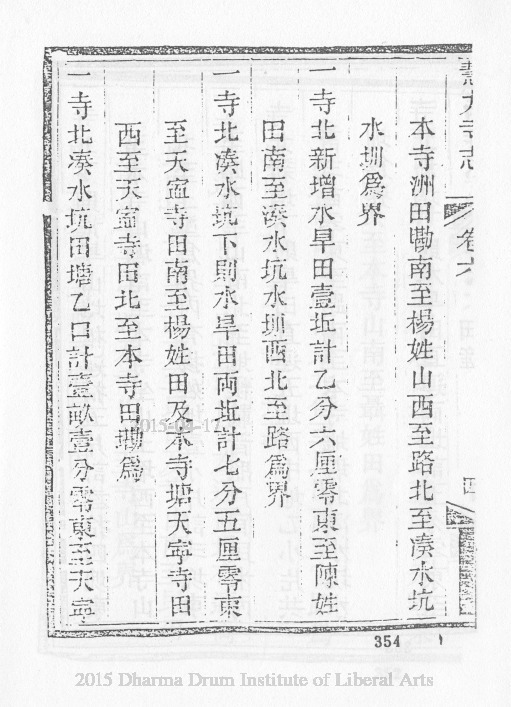 寺志　卷六　四
本寺洲田磡南至楊姓山西至路北至湊水坑
水圳爲界
一寺北新增水旱田壹坵計乙分六厘零東至陳姓
田南至湊水坑水圳西北至路爲界
一寺北湊水坑下則水旱田両坵計七分五厘零東
至天寍寺田南至楊姓田及本寺塘天寧寺田
西至天寍寺田北至本寺田磡爲
一寺北湊水坑田塘乙口計壹畝壹分零東至天寍
354
2015-04-17
2015 Dharma Drum Institute of Liberal Arts